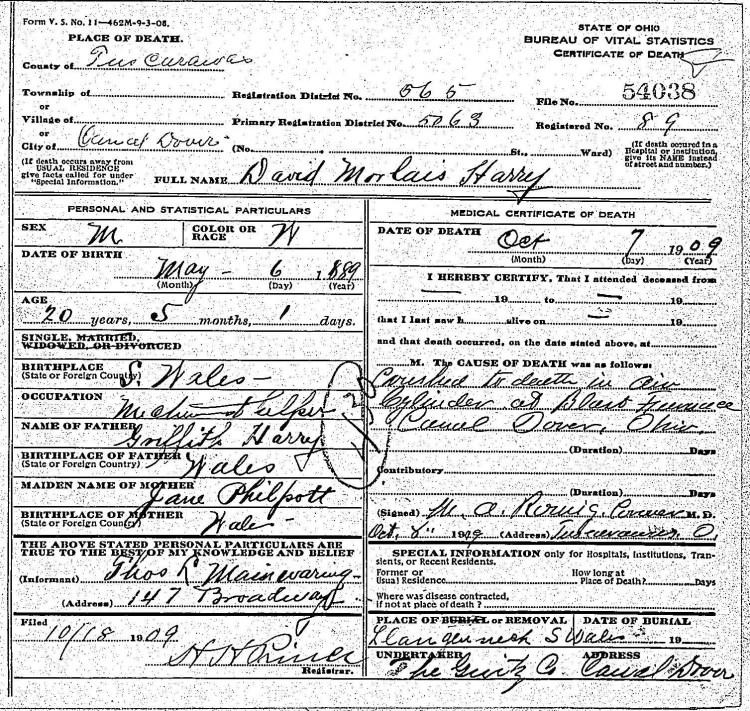 Form V. S. No. 11—462M-9-3-08.
PLACE OF DEATH.
STATE OF OHIO
BUREAU OF VITAL STATISTICS
CERTIFICATE OF DEATH
County of Tuscarawas
Township of
Registration District No. 565
File No. 54038
or
Village of
Primary Registration District No. 5063
Registered No. 89
or
City of Canal Dover (No. , St., Ward)
(If death occurred in a Hospital or Institution, give its NAME instead of street and number.)
(If death occurs away from USUAL RESIDENCE give facts called for under "Special Information.")
FULL NAME David Morlais Harry
PERSONAL AND STATISTICAL PARTICULARS
SEX M
COLOR OR RACE W
DATE OF BIRTH
May - 6 1889
(Month) (Day) (Year)
AGE
20 years, 5 months, 1 days.
SINGLE, MARRIED,
WIDOWED, OR DIVORCED
BIRTHPLACE
(State or Foreign Country) S. Wales -
OCCUPATION
helper
NAME OF FATHER
Griffith Harry
BIRTHPLACE OF FATHER
(State or Foreign Country) Wales
MAIDEN NAME OF MOTHER
Jane Philpott
BIRTHPLACE OF MOTHER
(State or Foreign Country) Wales
THE ABOVE STATED PERSONAL PARTICULARS ARE
TRUE TO THE BEST OF MY KNOWLEDGE AND BELIEF
(Informant) Thos L Mainwaring
(Address) 147 Broadway
Filed
10/18 1909
Registrar.
MEDICAL CERTIFICATE OF DEATH
DATE OF DEATH
Oct 7 1909
(Month) (Day) (Year)
I HEREBY CERTIFY, That I attended deceased from
19 to 19
that I last saw h alive on 19
and that death occurred, on the date stated above, at
M. The CAUSE OF DEATH was as follows:
Crushed to death in air
Cylinder at Blast Furnace
Canal Dover, Ohio.
(Duration) Days
Contributory
(Duration) Days
(Signed) M. D.
Oct. 8" 1909 (Address) Tuscarawas O.
SPECIAL INFORMATION only for Hospitals, Institutions, Transients, or Recent Residents.
Former or
Usual Residence
How long at
Place of Death? Days
Where was disease contracted,
if not at place of death ?
PLACE OF BURIAL or REMOVAL
DATE OF BURIAL
S Wales 19
UNDERTAKER
ADDRESS
Canal Dover